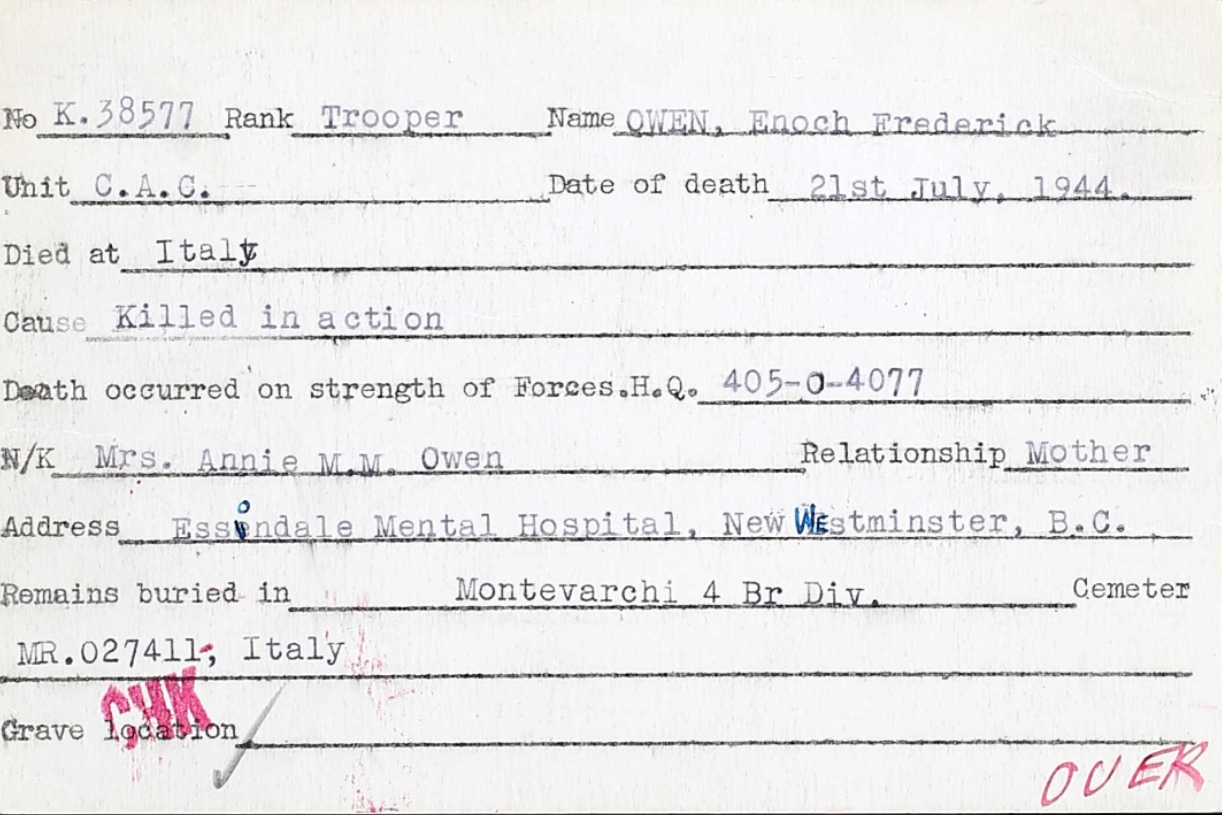 No K.38577 Rank Trooper Name OWEN, Enoch Frederick
Unit C.A.C. Date of death 21st July, 1944.
Died at Italy
Cause Killed in action
Death occurred on strength of Forces.H.Q. 405-O-4077
N/K Mrs. Annie M.M. Owen Relationship Mother
Address Essondale Mental Hospital, New Westminster, B.C.
Remains buried in Montevarchi 4 Br Div. Cemeter
MR.027411, Italy
CHK
Grave location
OVER